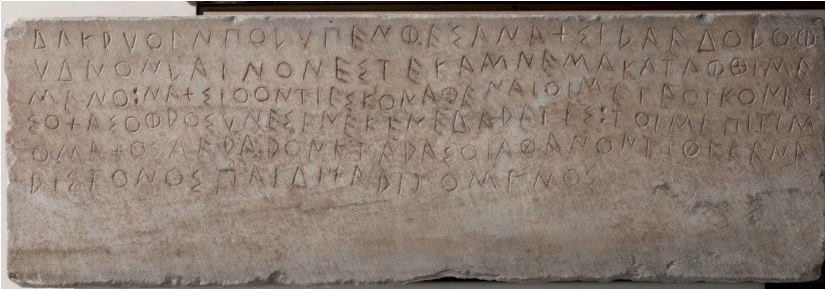 ΔΑΚΡΥΟΕΝΠΟΛΥΠΕΝΘΕΣΑΝΑΧΣΙΛΑΕΔΟΛΟΦ
ΥΔΝΟΝΛΑΙΝΟΝΕΣΤΕΚΑΜΝΕΜΑΚΑΤΑΦΘΙΜΕ
ΜΕΝΟ⁝ΝΑΧΣΙΟΟΝΤΙΕΣΚΟΝΑΘΕΝΑΙΟΙΜΕΤΑΟΙΚΟΝΕΧ
ΣΟΧΑΣΟΦΡΟΣΥΝΕΣΕΝΕΚΕΝΕΔΑΡΕΤΕΣ⁝ΤΟΙΜΕΠΙΤΙΜ
ΟΜΑΧΟΣΓΕΡΑΡΟΝΚΤΕΡΑΣΟΙΑΘΑΝΟΝΤΙΘΕΚΕΝΑ
ΡΙΣΤΟΝΟΣΠΑΙΔΙΧΑΡΙΖΟΜΕΝΟΣ